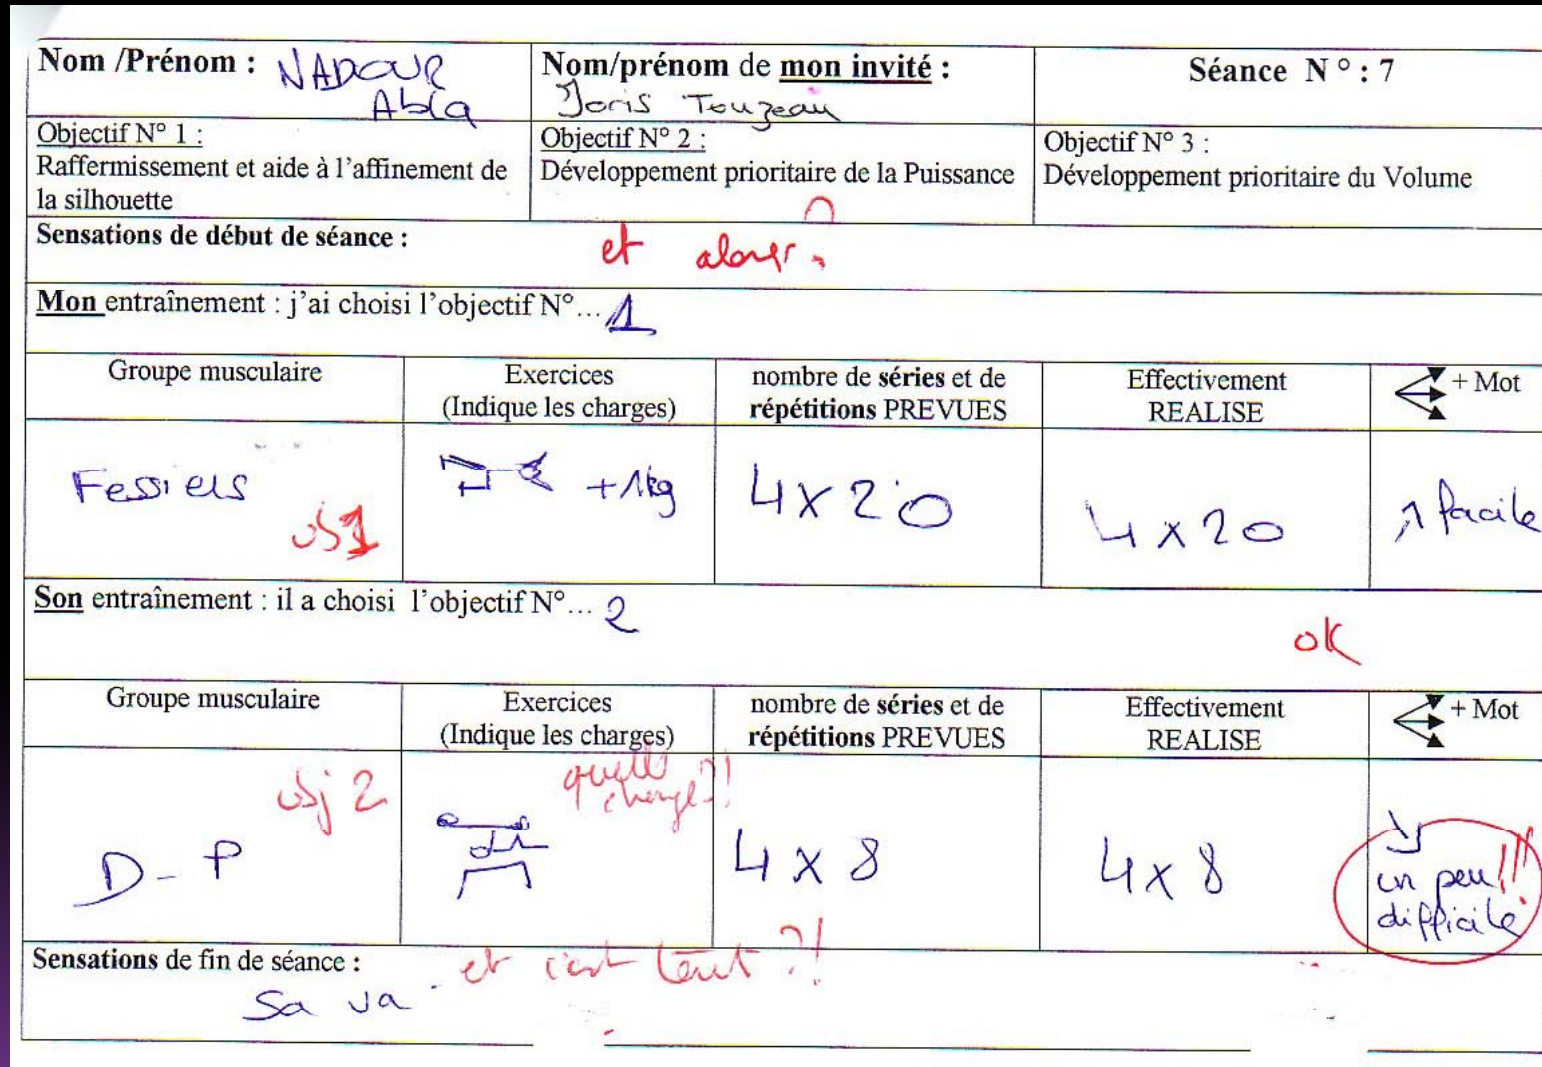 Nom /Prénom : NADOUR
Abla
Nom/prénom de mon invité :
Joris Touzeau
Séance N° : 7
Objectif N° 1 :
Raffermissement et aide à l'affinement de
la silhouette
Objectif N° 2 :
Développement prioritaire de la Puissance
Objectif N° 3 :
Développement prioritaire du Volume
Sensations de début de séance :
et alors ?
Mon entraînement : j'ai choisi l'objectif N°... 1
Groupe musculaire
Exercices
(Indique les charges)
nombre de séries et de
répétitions PREVUES
Effectivement
REALISE
+ Mot
Fessiers
obj 1
+1kg
4 x 20
4 x 20
↗ facile
Son entraînement : il a choisi l'objectif N°... 2
ok
Groupe musculaire
Exercices
(Indique les charges)
nombre de séries et de
répétitions PREVUES
Effectivement
REALISE
+ Mot
obj 2
D-P
quelle
charge ?!
4 x 8
4 x 8
↘
un peu !!!
difficile
Sensations de fin de séance :
Sa va
et c'est tout ?!